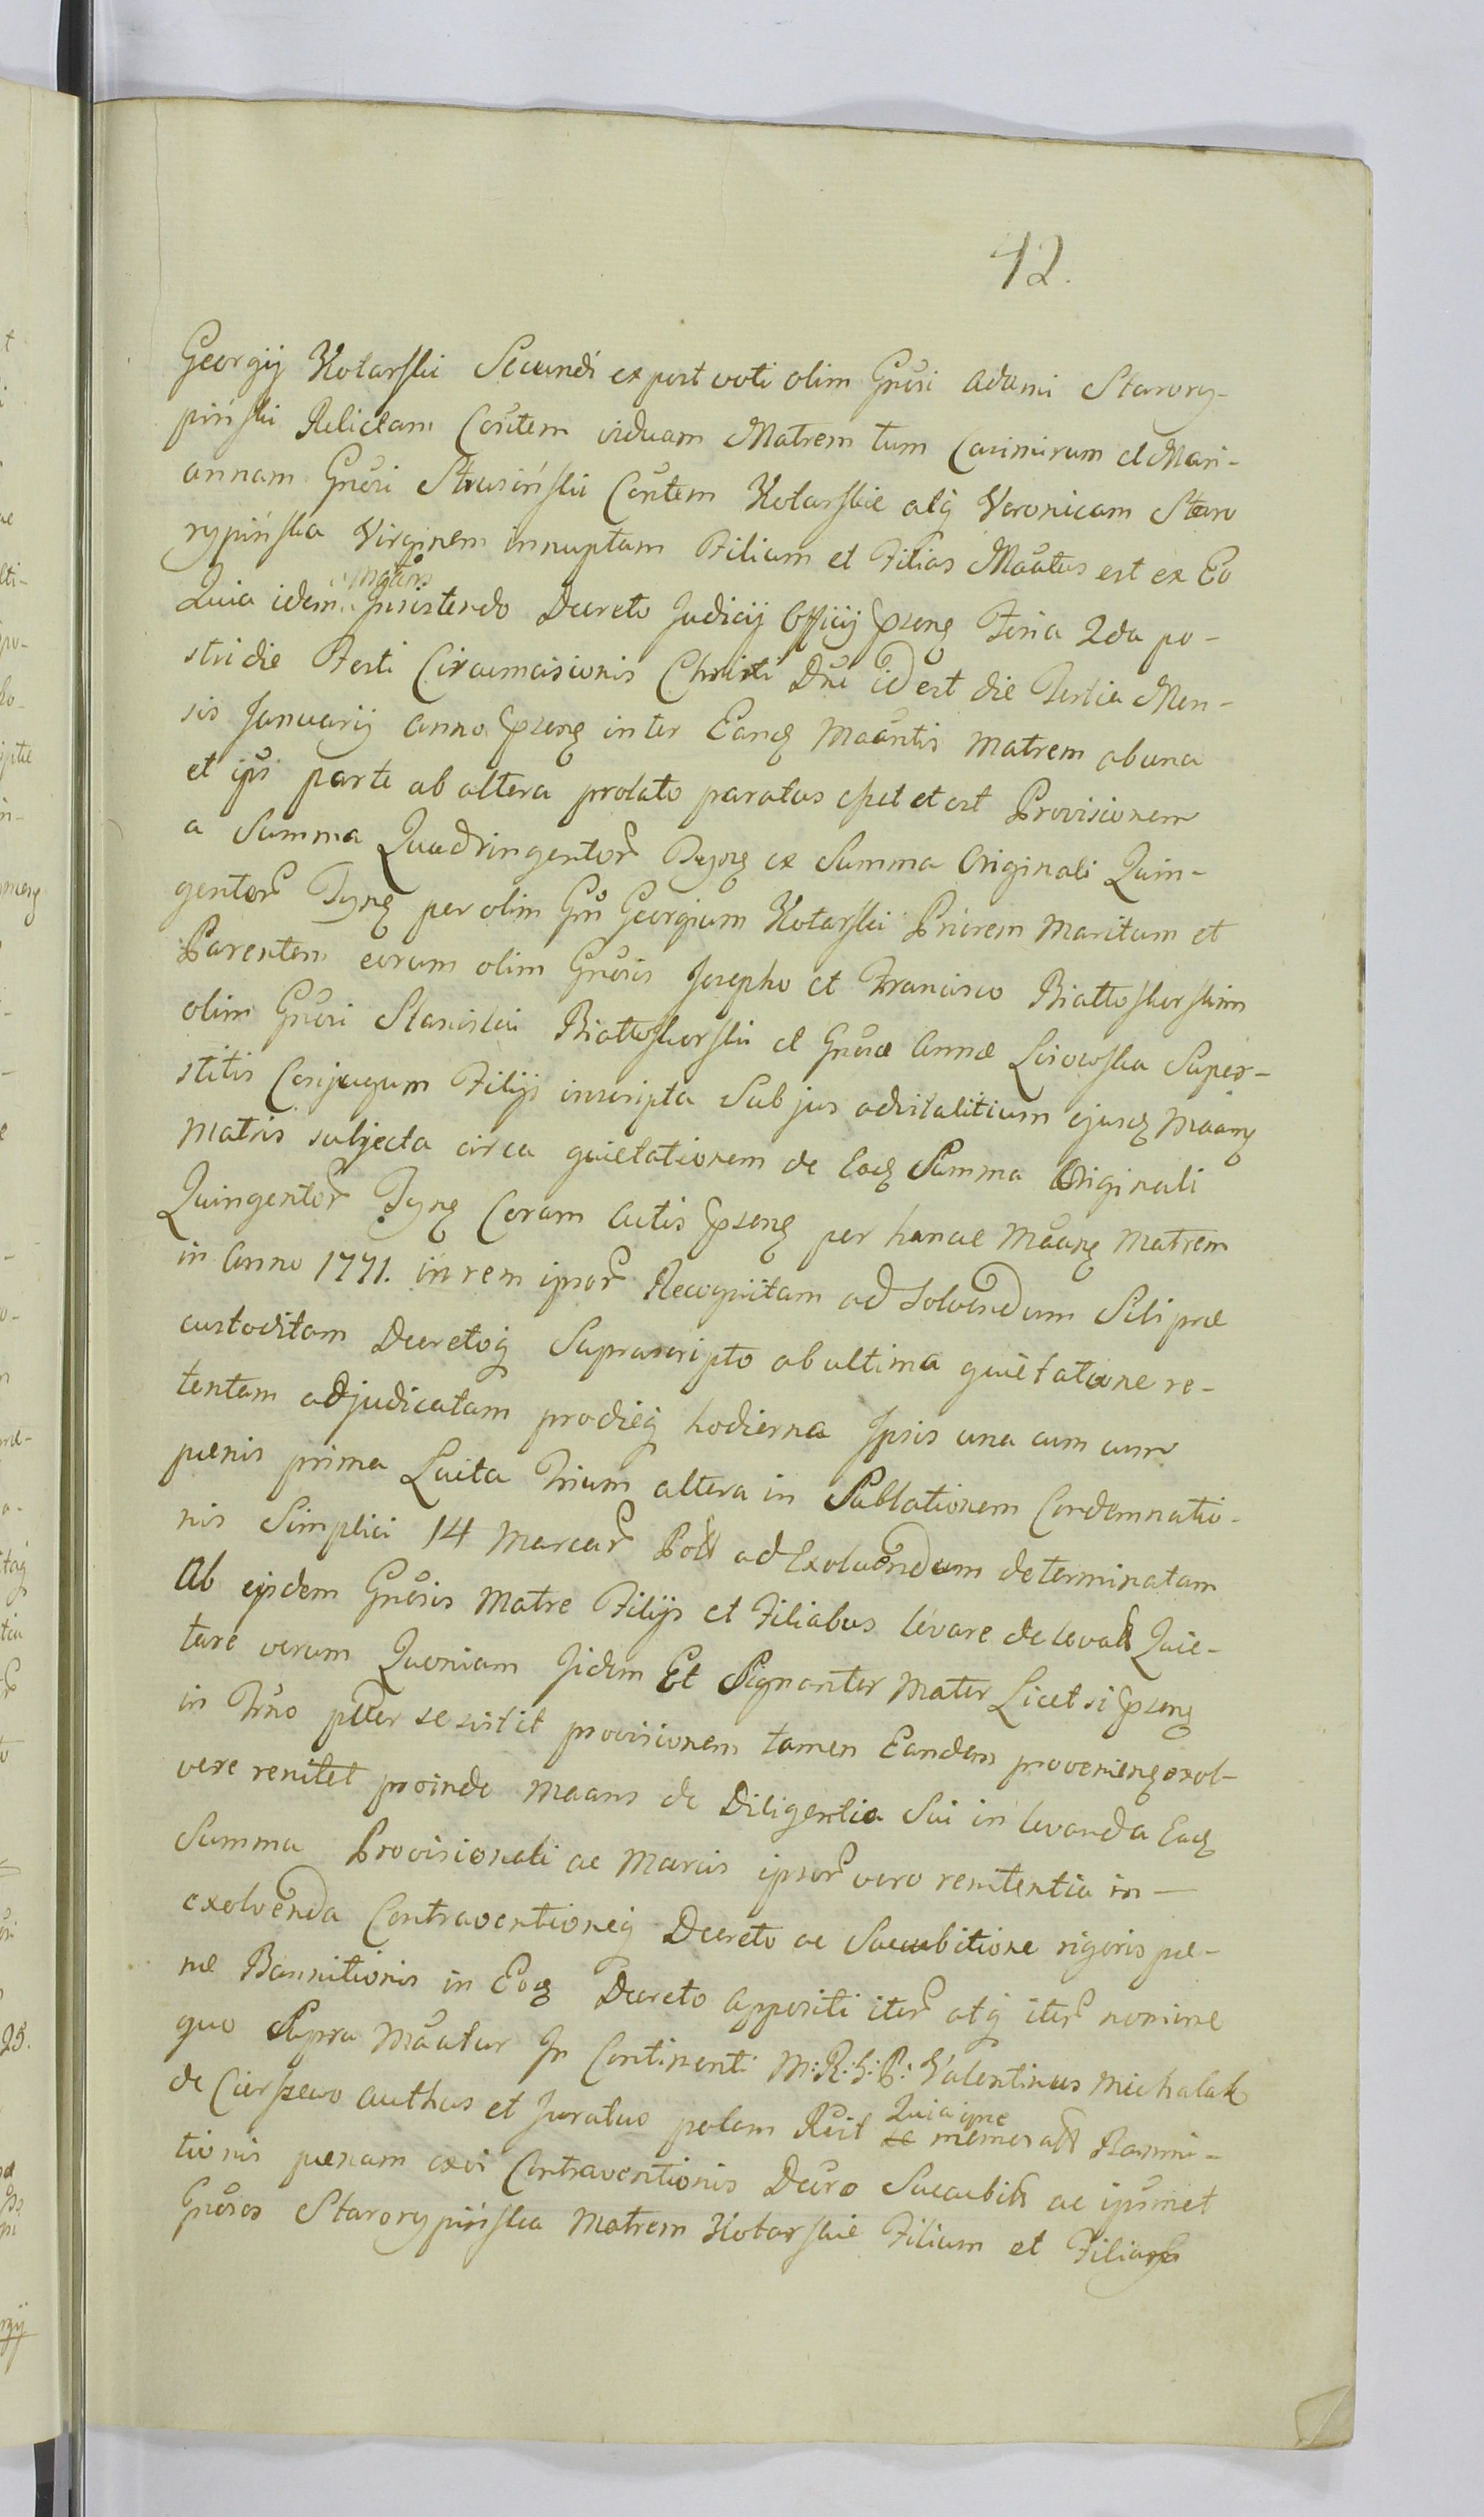 42.
Georgij Kotarski Secundi ex post voti olim Gnŕsi Adami Starory-
piński Relictam Cońtem viduam Matrem tum Casimirum et Mari-
annam Gnŕsi Strusiński Cońtem Kotarskie atq Veronicam Staro
rypińska Virginem innuptam Filium et Filias Maátus est ex Eo
Quia idem Maáns Insistendo Decreto Judicij Officij pseng Feria 2da po-
stridie Festi Circumcisionis Christi Dni id est die Tertia Men-
sis Januarij anno pseng inter Eandq Maántis Matrem ab una
et ipsi parte ab altera prolato paratus esset et est Provisionem
a Summa Quadringentor Tynq ex Summa Originali Quin-
gentor Tynq per olim Gnŕ Georgium Kotarski Priorem Maritum et
Parentem eorum olim Gnŕsis Josepho et Francisco Białłoskorskim
olim Gnŕsi Stanislai Białłoskorski et Gnŕsæ Annæ Lisowska Super-
stitis Conjugum Filijs inscripta Sub jus advitalitium ejusdq Maánq
Matris subjecta circa quietationem de Eadq Summa Originali
Quingentor Tynq Coram Actis pseng per hancce Maánq Matrem
in Anno 1771. in rem ipsor Recognitam ad solvendum Sibi præ
custoditam Decretoq Suprascripto ab ultima quietatione re-
tentam adjudicatam prodieq hodierna Ipsis una cum cum
pænis prima Luita Trium altera in Sublationem Condemnatio-
nis Simplici 14 Marcar Poll ad Exolvendum determinatam
Ab ejsdem Gnŕsis Matre Filijs et Filiabus levare de levatt Quie-
tare verum Quoniam Iidem Et Signanter Mater Licet si pseng
in Trno ptter se sistit provisionem tamen Eandem provenienq exol-
vere renitet proinde Maans de Diligentia Sui in levanda Eadq
Summa Provisionali ac Marcis ipsor vero renitentia in —
exolvenda Contraventioneq Decreto ac Succubitione rigoris pæ-
næ Bannitionis in Eodq Decreto Appositi iter atq iter nomine
quo Supra Maátur In Continenti M: R: S: P: Valentinus Michalak
de Cierszewo Authus et Juratus palam Rcit Quia ipse memoratt Banni-
tionis pænam cxvi Contraventionis Decro Succubitt ac ipsmet
Gnŕsos Starorypińska Matrem Kotarskie Filium et Filias